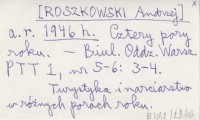 [ROSZKOWSKI Andrzej]
a.r. 1946 r. Cztery pory
roku. — Biul. Oddz. Warsz.
PTT 1, nr 5-6: 3-4.
Turystyka i narciarstwo
w różnych porach roku.